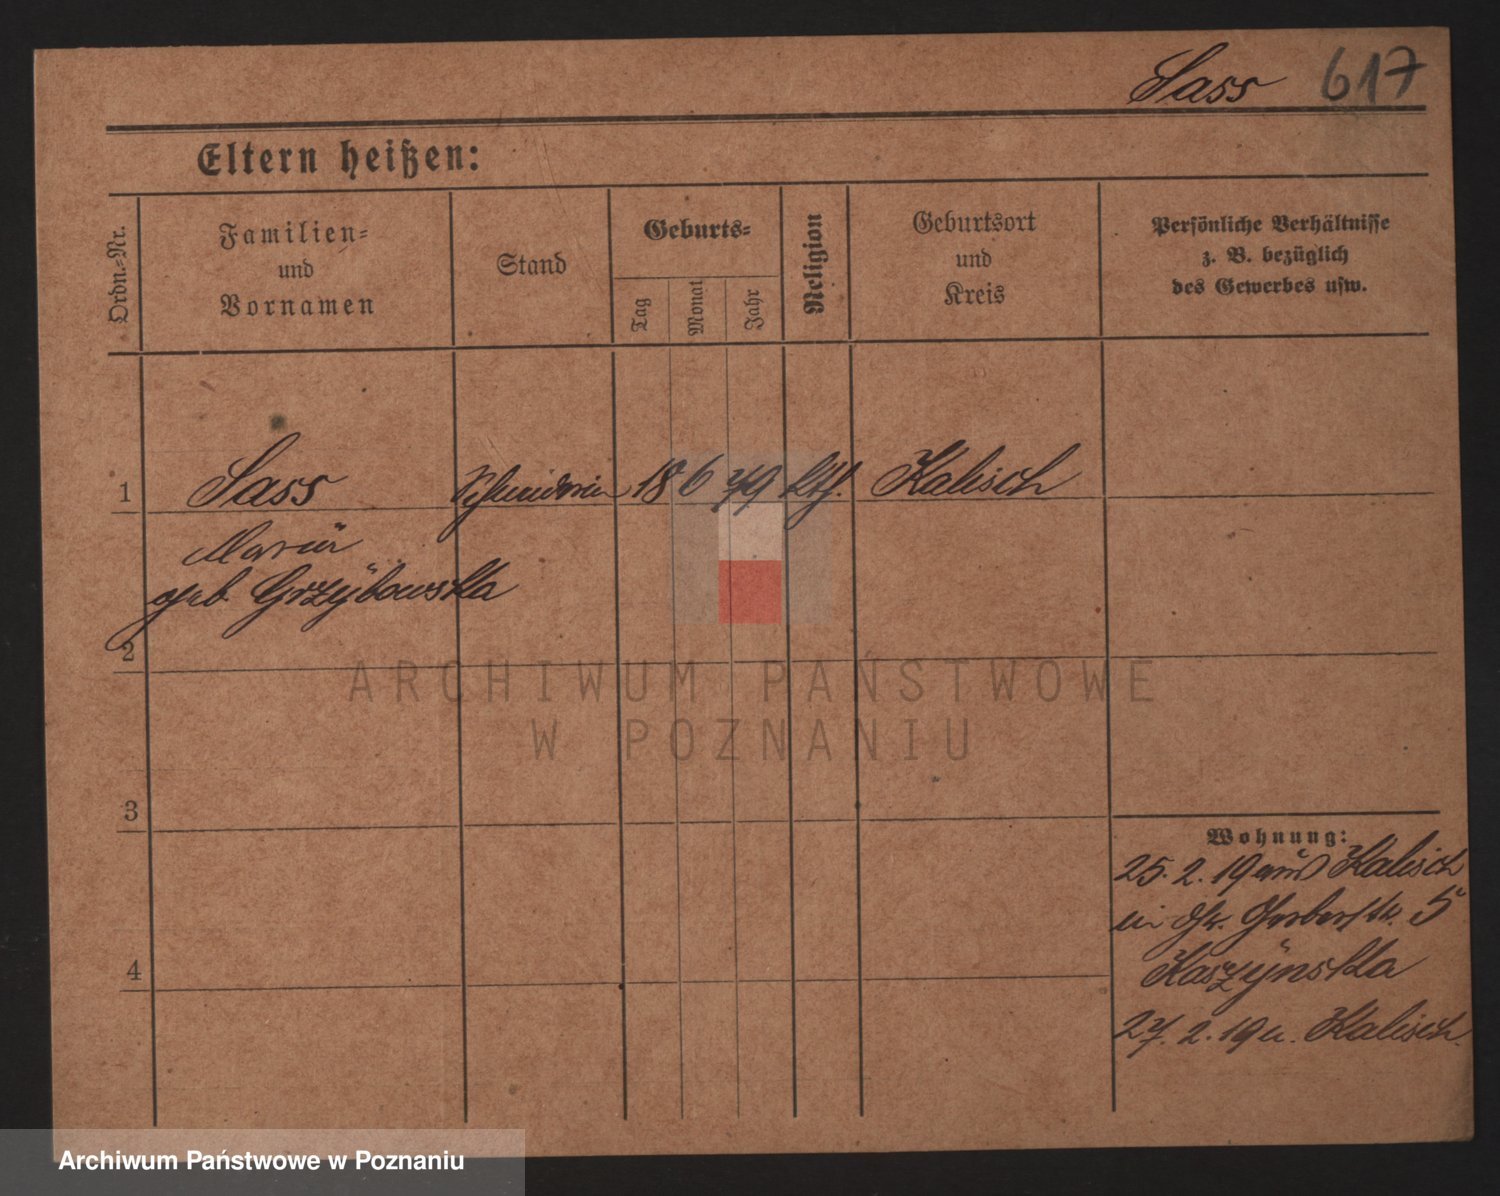 Sass 617
Eltern heißen:
Ordn.-Nr.
Familien-
und
Vornamen
Stand
Geburts-
Tag
Monat
Jahr
Religion
Geburtsort
und
Kreis
Persönliche Verhältnisse
z. B. bezüglich
des Gewerbes usw.
1 Sass Schneiderin 18 6 79 kth. Kalisch
Maria
geb. Grzybowska
2
3
4
Wohnung:
25. 2. 19 aus Kalisch
in Gr. Gerberstr. 5
Kaszynska
27. 2. 19 n. Kalisch.
ARCHIWUM PAŃSTWOWE
W POZNANIU
Archiwum Państwowe w Poznaniu